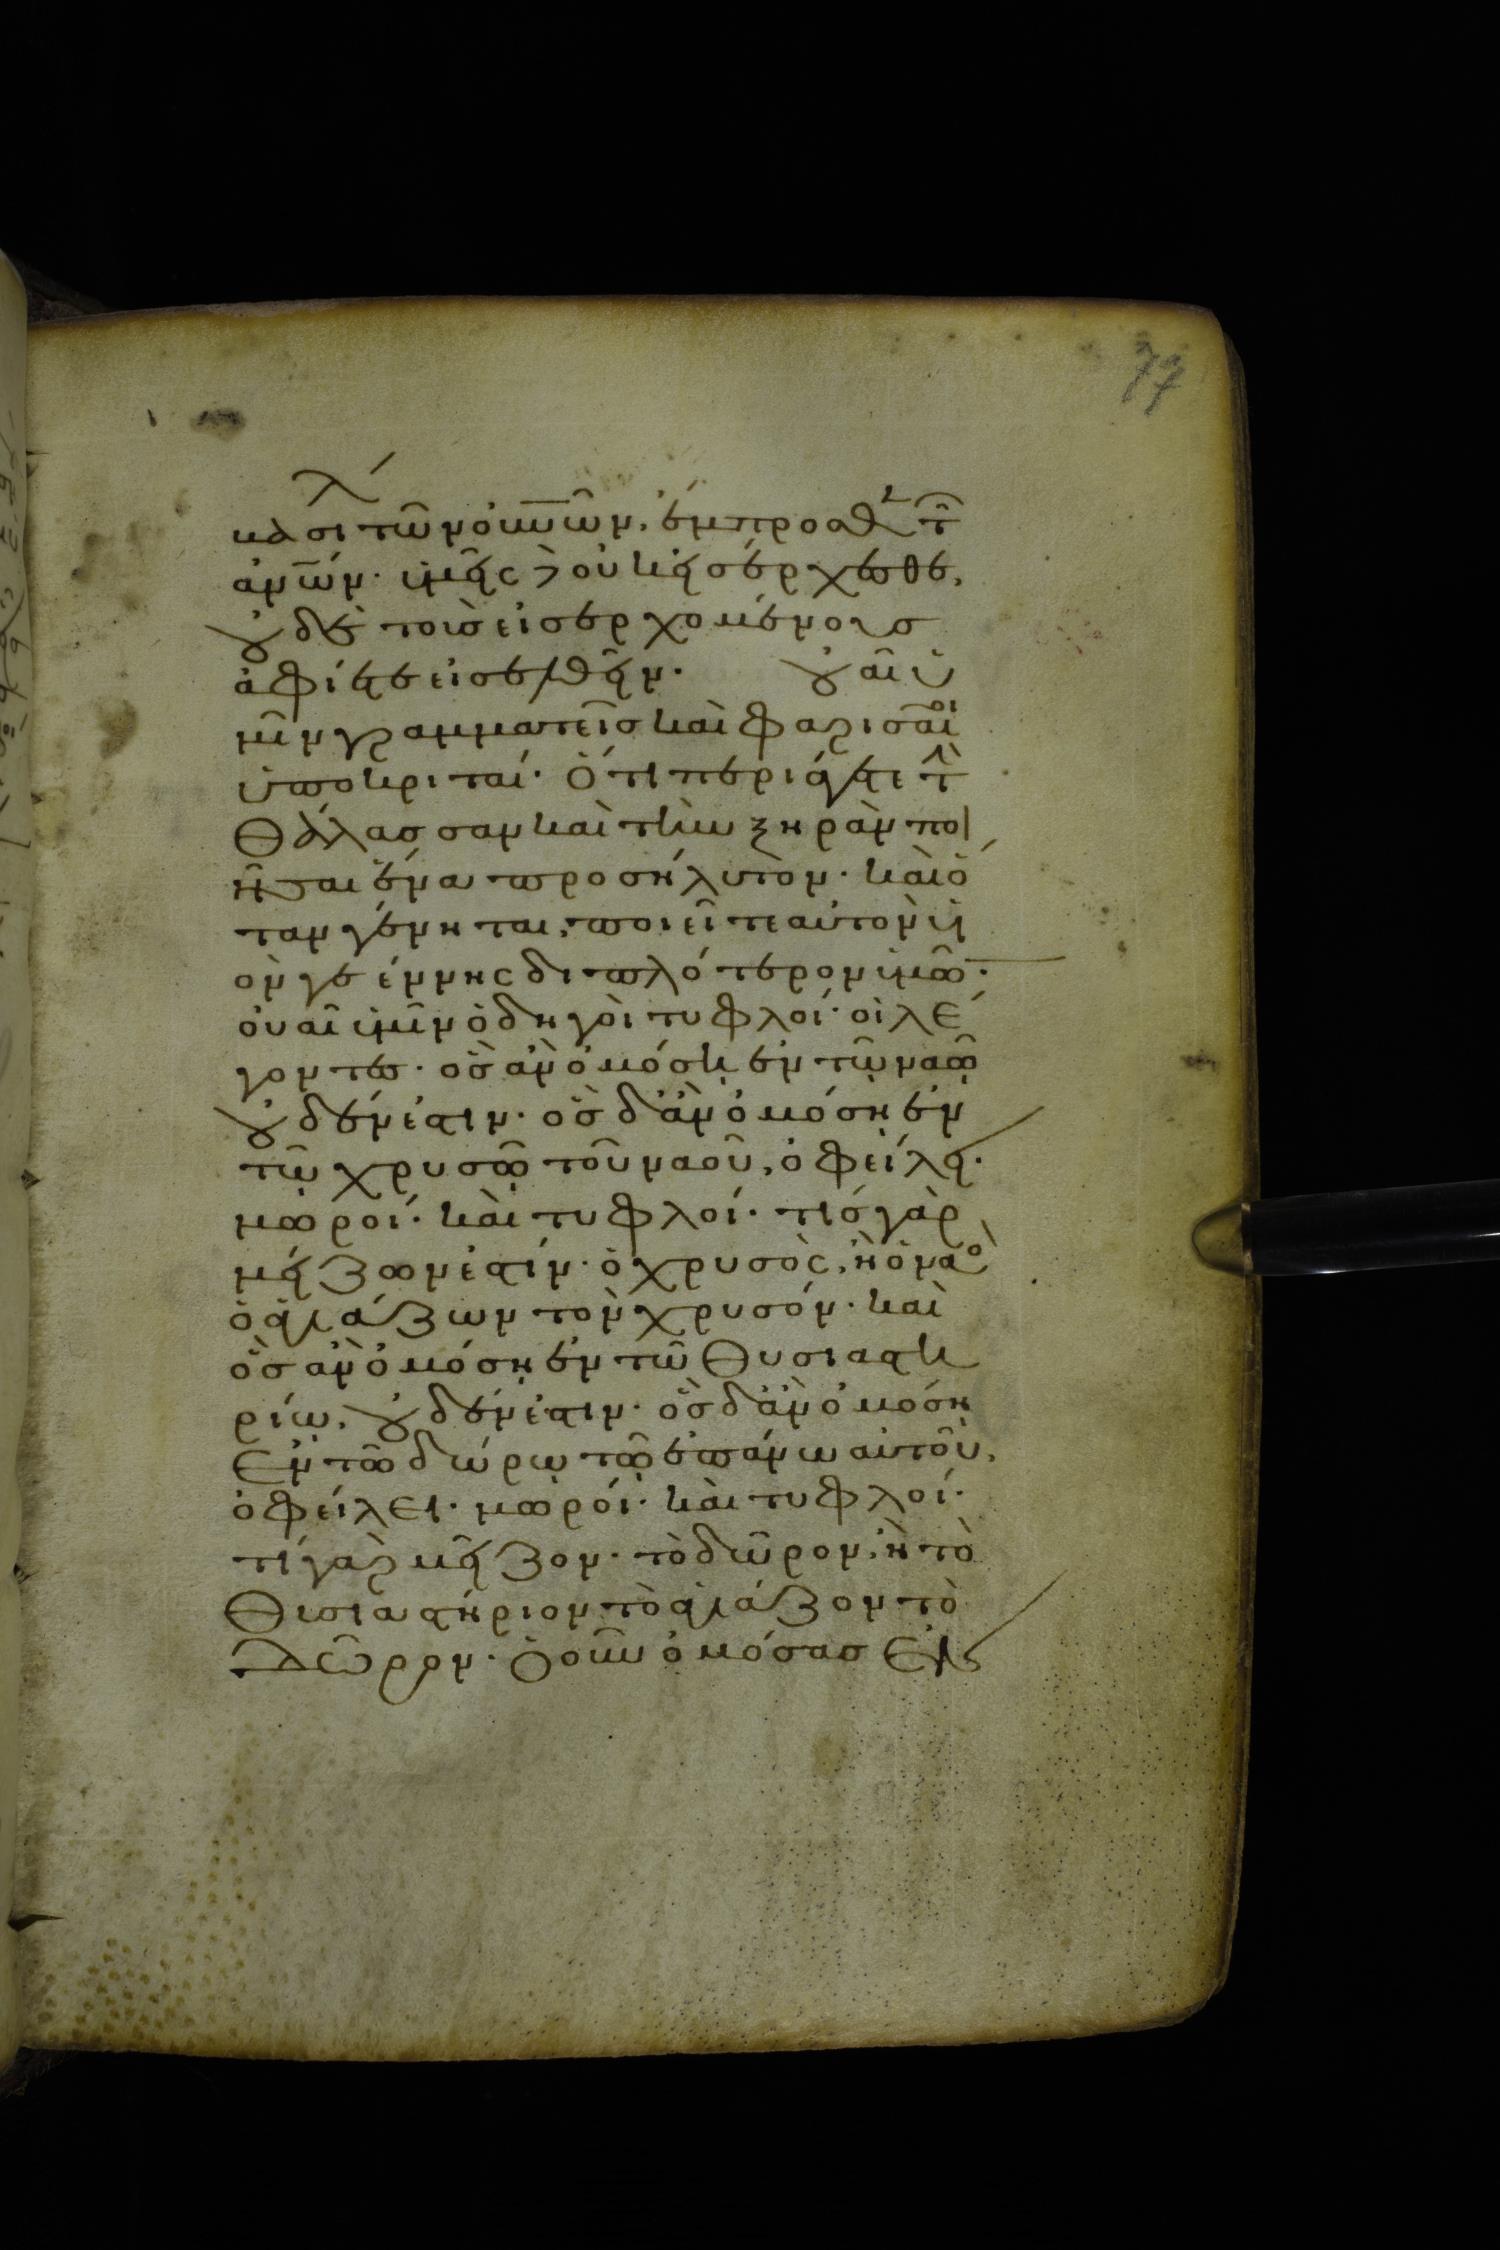 77
λείαν
τῶν οὐνῶν. ἔμπροσθεν τῶν
ἀνῶν. ὑμεῖς γὰρ οὐκ εἰσέρχεσθε,
οὐδὲ τοὺς εἰσερχομένους
ἀφίετε εἰσελθεῖν. οὐαὶ ὑ
μῖν γραμματεῖς καὶ φαρισαῖοι
ὑποκριταί. ὅτι περιάγετε τὴν
θάλασσαν καὶ τὴν ξηρὰν ποι
ῆσαι ἕνα προσήλυτον. καὶ ὅ
ταν γένηται, ποιεῖτε αὐτὸν υἱ
ὸν γεέννης διπλότερον ὑμῶν.
οὐαὶ ὑμῖν ὁδηγοὶ τυφλοί. οἱ λέ
γοντες. ὃς ἂν ὀμόσῃ ἐν τῷ ναῷ
οὐδέν ἐστιν. ὃς δ' ἂν ὀμόσῃ ἐν
τῷ χρυσῷ τοῦ ναοῦ, ὀφείλει.
μωροί. καὶ τυφλοί. τίς γὰρ
μείζων ἐστίν. ὁ χρυσὸς, ἢ ὁ ναὸς
ὁ ἁγιάζων τὸν χρυσόν. καὶ
ὃς ἂν ὀμόσῃ ἐν τῶ θυσιαστη
ρίῳ, οὐδέν ἐστιν. ὃς δ' ἂν ὀμόσῃ
ἐν τῶ δώρῳ τῷ ἐπάνω αὐτοῦ,
ὀφείλει. μωροί. καὶ τυφλοί.
τί γὰρ μεῖζον. τὸ δῶρον, ἢ τὸ
θυσιαστήριον τὸ ἁγιάζον τὸ
δῶρον. ὁ οὖν ὀμόσας ἐν